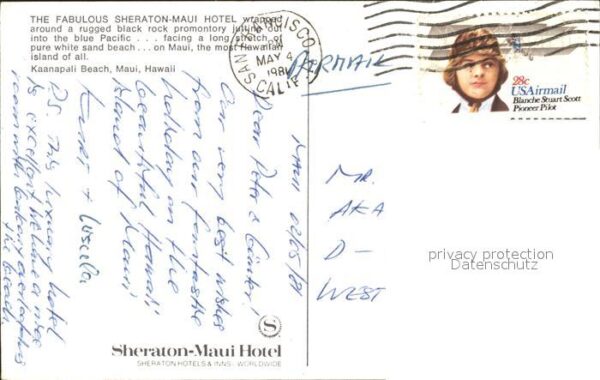 THE FABULOUS SHERATON-MAUI HOTEL wrapped
around a rugged black rock promontory jutting out
into the blue Pacific . . . facing a long stretch of
pure white sand beach . . . on Maui, the most Hawaiian
island of all.
Kaanapali Beach, Maui, Hawaii
SAN FRANCISCO
MAY 4
1981
CALIF
AIRMAIL
28c
USAirmail
Blanche Stuart Scott
Pioneer Pilot
MAUI 02/05/81
Dear Peter & Günter,
Our very best wishes
from our fantastic
holiday on the
beautiful Hawaii
Island of Maui
Kurt + Ursula
P.S. This luxury hotel
is excellent. We have a nice
room with balcony overlooking
the beach.
MR.
AKA
D-
WEST
privacy protection
Datenschutz
S
Sheraton-Maui Hotel
SHERATON HOTELS & INNS, WORLDWIDE